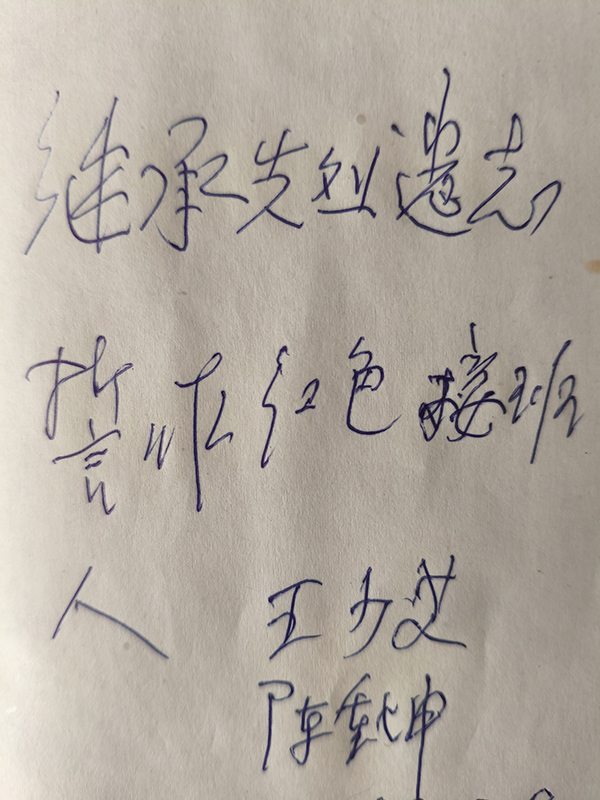 继承先烈遗志
誓作红色接班
人 王少艾
陈